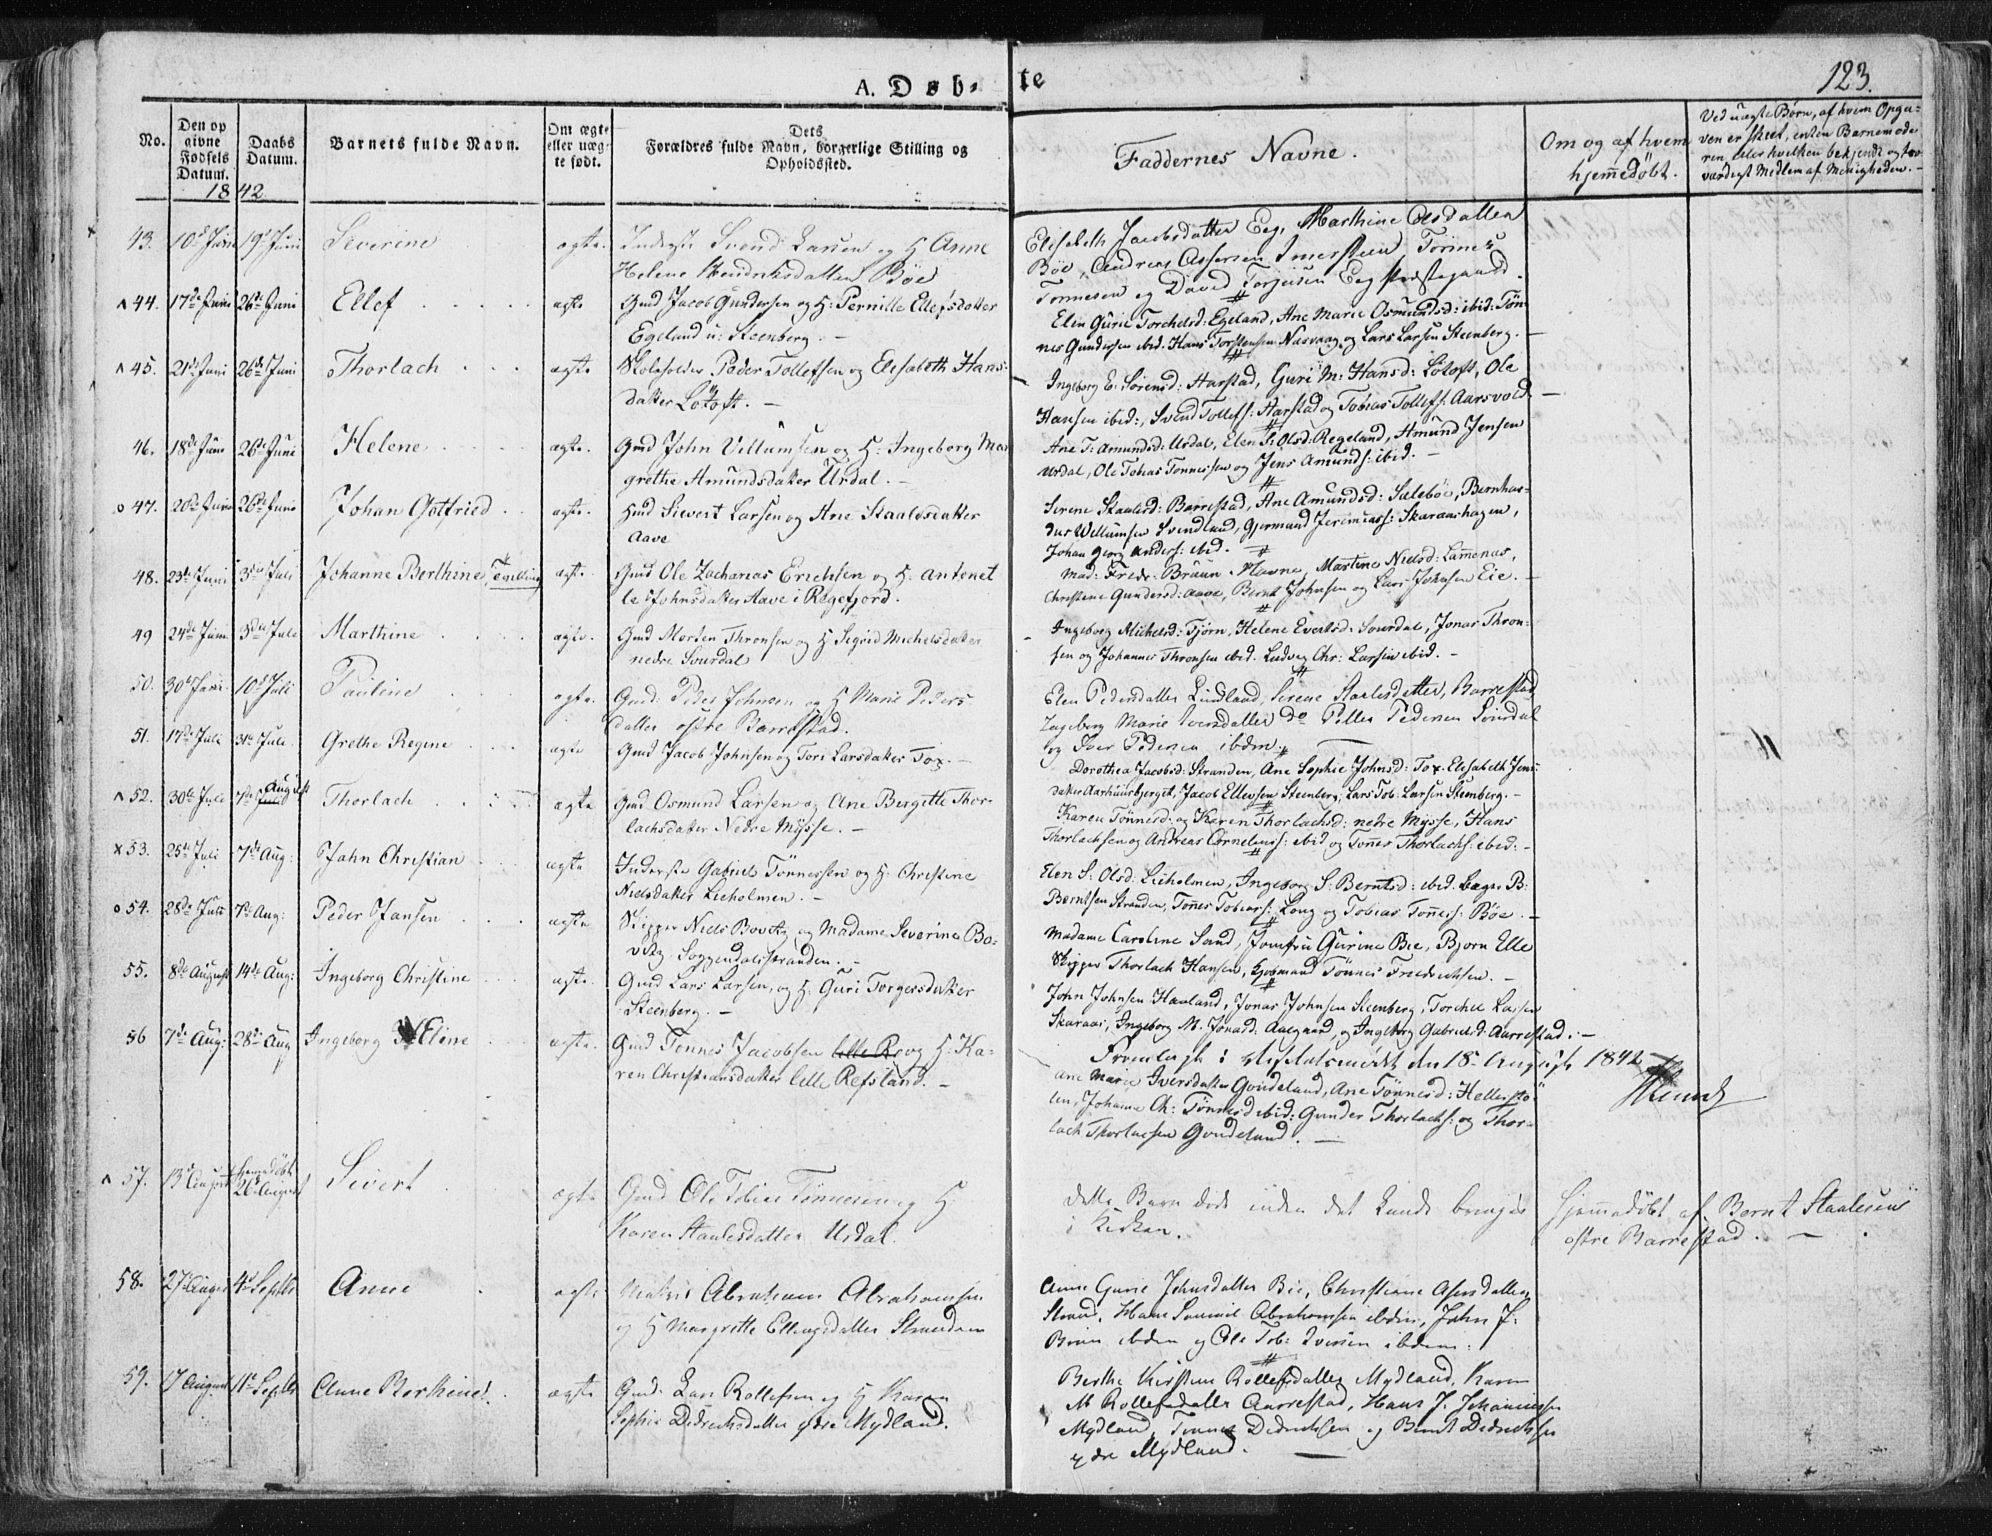 A. Døb- te
123.
No.
Den op
givne
Fødsels
Datum.
Daabs
Datum.
Barnets fulde Navn.
Om ægte
eller uæg-
te født.
Dets
Forældres fulde Navn, borgerlige Stilling og
Opholdssted.
Faddernes Navne.
Om og af hvem
hjemmedöbt.
Ved uægte Børn, af hvem Opga-
ven er skeet, enten Barnemode
ren eller hvilken bekjendt og tro-
værdigt Medlem af Menigheden.
1842
43. 10de Juni 19de Juni Severine ægte. Inderste Svend Larsen og H Anne
Helene Hendriksdatter Böe
Elisabeth Jacobsdatter Eeg, Marthine Olsdatter
Böe, Andreas Assersen Imersteen Tönnes
Tönnesen og David Torjusen Eeg præstegaard.
44. 17de Juni 26de Juni Ellef ægte Gmd Jacob Gundersen og H: Pernille Ellefsdatter
Egeland u: Steenberg. -
Elen Gurie Torchelsd: Egeland, Ane Marie Osmundsd: ibid: Tön-
nes Gundersen ibid. Hans Torstensen Nasvaag og Lars Larsen Steenberg. -
45. 21de Juni 26de Juni Thorlach ægte Skoleholder Peder Tollefsen og Elisabeth Hans-
datter Lötoft. -
Ingeborg E: Sörensd: Aarstad, Guri M: Hansd: Lötoft, Ole
Hansen ibid:, Svend Tollefs: Aarstad og Tobias Tollefs: Aarsvold. -
46. 18de Juni 26de Juni Helene ægte. Gmd John Villumsen og H: Ingeborg Mar
grethe Amundsdatter Urdal. -
Ane T: Amundsd: Urdal, Elen S: Olsd: Regeland, Amund Jensen
Urdal, Ole Tobias Tönnessen og Jens Amunds: ibid. -
47. 20de Juni 26de Juni Johan Gotfried ægte. Hmd Siwert Larsen og Ane Staalesdatter
Aave
Serene Staalesd: Barrestad, Ane Amundsd: Sælebö, Bernhar-
dus Wellumsen Svendland, Gjermund Jeremiass: Skaraashagen,
Johan Georg Anders: ibid.
48. 23de Juni 3die Juli Johanne Berthine, Tvilling ægte Gmd Ole Zacharias Erichsen og H: Antonet
te Johnsdatter Aave i Regefjord.
Mad: Fredr: Bruun Havne, Martine Nielsd: Lamenas,
Christine Gundersd: Aave, Bernt Johnsen og Lars Johnsen Eie. -
49 24de Juni 3die Juli Marthine ægte. Gmd Morten Thronsen og H Segrid Michelsdatter
nedre Sourdal
Ingeborg Michelsd: Fjörn, Helene Evertsd: Sourdal, Jonas Thron-
sen og Johannes Thronsen ibid. Ludvig Chr: Larsen ibid. -
50. 30de Juni 10de Juli Pauline ægte. Gmd: Peder Johnsen og H Marie Peders
datter östre Barrestad.
Elen Pedersdatter Lindland, Serene Staalesdatter, Barrestad,
Ingeborg Marie Iversdatter do Petter Pedersen Sourdal
og Iver Pedersen ibdm.
51. 17de Juli 31te Juli Grethe Regine ægte Gmd Jacob Johnsen og Tori Larsdatter Tox. -
Dorothea Jacobsd: Stranden, Ane Sophie Johnsd: Tox, Elisabeth Jens-
datter Aarhuusbjerget, Jacob Ellevsen Steenberg, Lars Tob: Larsen Steenberg. -
52. 30te Juli 7de August Thorlach ægte Gmd Osmund Larsen og Ane Bergitte Thor-
lachsdatter Nedre Mysse. -
Karen Tönnesd: og Karen Thorlachsd: nedre Mysse, Hans
Thorlachsen og Andreas Corneliuss: ibid og Tönnes Thorlachs: ibid: -
53. 25de Juli 7de Aug: John Christian ægte Inderste Gabriel Tönnessen og H: Christine
Nielsdatter Lieholmen. -
Elen S: Olsd: Lieholmen, Ingeborg S: Berntsd: ibid. Lages B:
Berntsen Stranden, Tönnes Tobiass: Long og Tobias Tönnes: Böe. -
54. 28de Juli 7de Aug: Peder Jansen ægte Skipper Niels Bovitz og Madame Severine Bo-
vitz. Soggendalsstranden. -
Madame Caroline Sand, Jomfru Gurine Bie, Bjorn Elle
Skipper Thorlach Hansen, Kjøbmand Tönnes Friedrichsen. -
55. 8de August 14de Aug: Ingeborg Christine ægte. Gmd Lars Larsen, og H: Guri Torgersdatter
Steenberg. -
John Johnsen Haaland, Jonas Johnsen Steenberg, Torchel Larsen
Skaraas, Ingeborg M. Jonasd: Aasgaard, og Ingeborg Gabrielsd: Aarrestad. -
56 7de Aug: 28de Aug Ingeborg Eline ægte. Gmd Tönnes Jacobsen lille R og H: Ka-
ren Christiansdatter lille Refsland. -
Fremlagt i Visitatsmödet den 18de August 1842
Ane Marie Iversdatter Goudeland, Ane Tönnesd: Hellerstö
len, Johanne Ch: Tönnesd ibid: Gunder Thorlachs: og Thor-
lach Thorlachsen Goudeland. -
57. 13de August hjemmedöbt 26de August Sivert ægte Gmd Ole Tobias Tönnesen og H
Karen Staalesdatter Urdal.
dette Barn döde inden det kunde bringes
i Kirken.
Hjemmedöbt af Bernt Staalesen
östre Barrestad. -
58. 27de August 4de Septbr Anne ægte Matros Abraham Abrahamsen
og H Margrethe Ellingsdatter Stranden
Anne Gurie Johnsdatter Bie, Christiane Asersdatter
Strand, Hans Samuel Abrahamsen ibdm, John J.
Bruun ibdem og Ole Tob: Iversen ibdem.
59. 17 August 11te Septbr Anne Berthine ægte Gmd. Lars Rollefsen og H Karen
Sophie Didrichsdatter ydre Mydland.
Berthe Kirstine Rollefsdatter Mydland, Karen
M Rollefsdatter Aarrestad, Hans J. Johannessen
Mydland, Tönnes Didrichsen og Bernt Didrichsen
ydre Mydland.